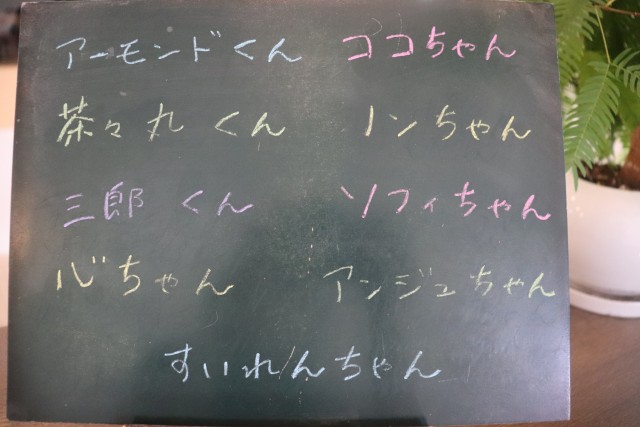 アーモンドくん ココちゃん
茶々丸くん ノンちゃん
三郎くん ソフィちゃん
心ちゃん アンジュちゃん
すいれんちゃん